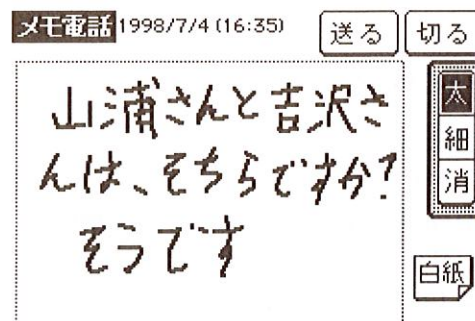 メモ電話 1998/7/4(16:35) 送る 切る
山浦さんと吉沢さ
んは、そちらですか?
そうです
太
細
消
白紙